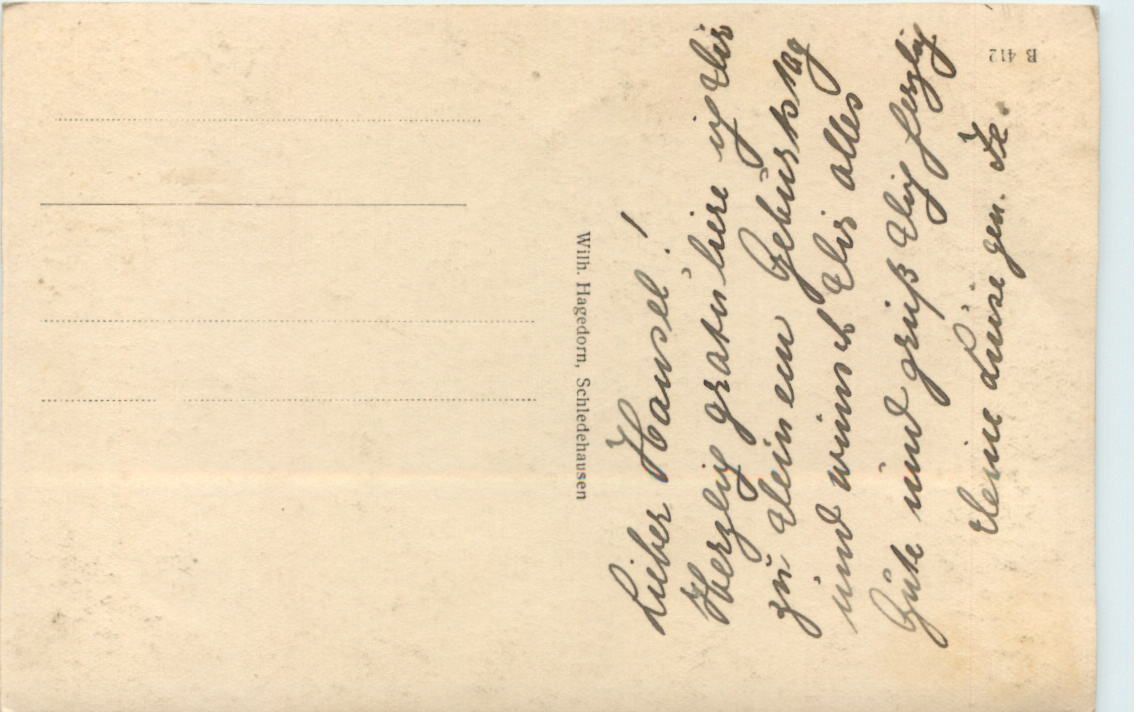 Lieber Hansel!
Herzlich gratuliere ich Dir
zu Deinem Geburtstag
und wünsch Dir alles
Gute und grüß Dich herzlich
Deine Luise gen.
Wilh. Hagedorn, Schledehausen
B 412